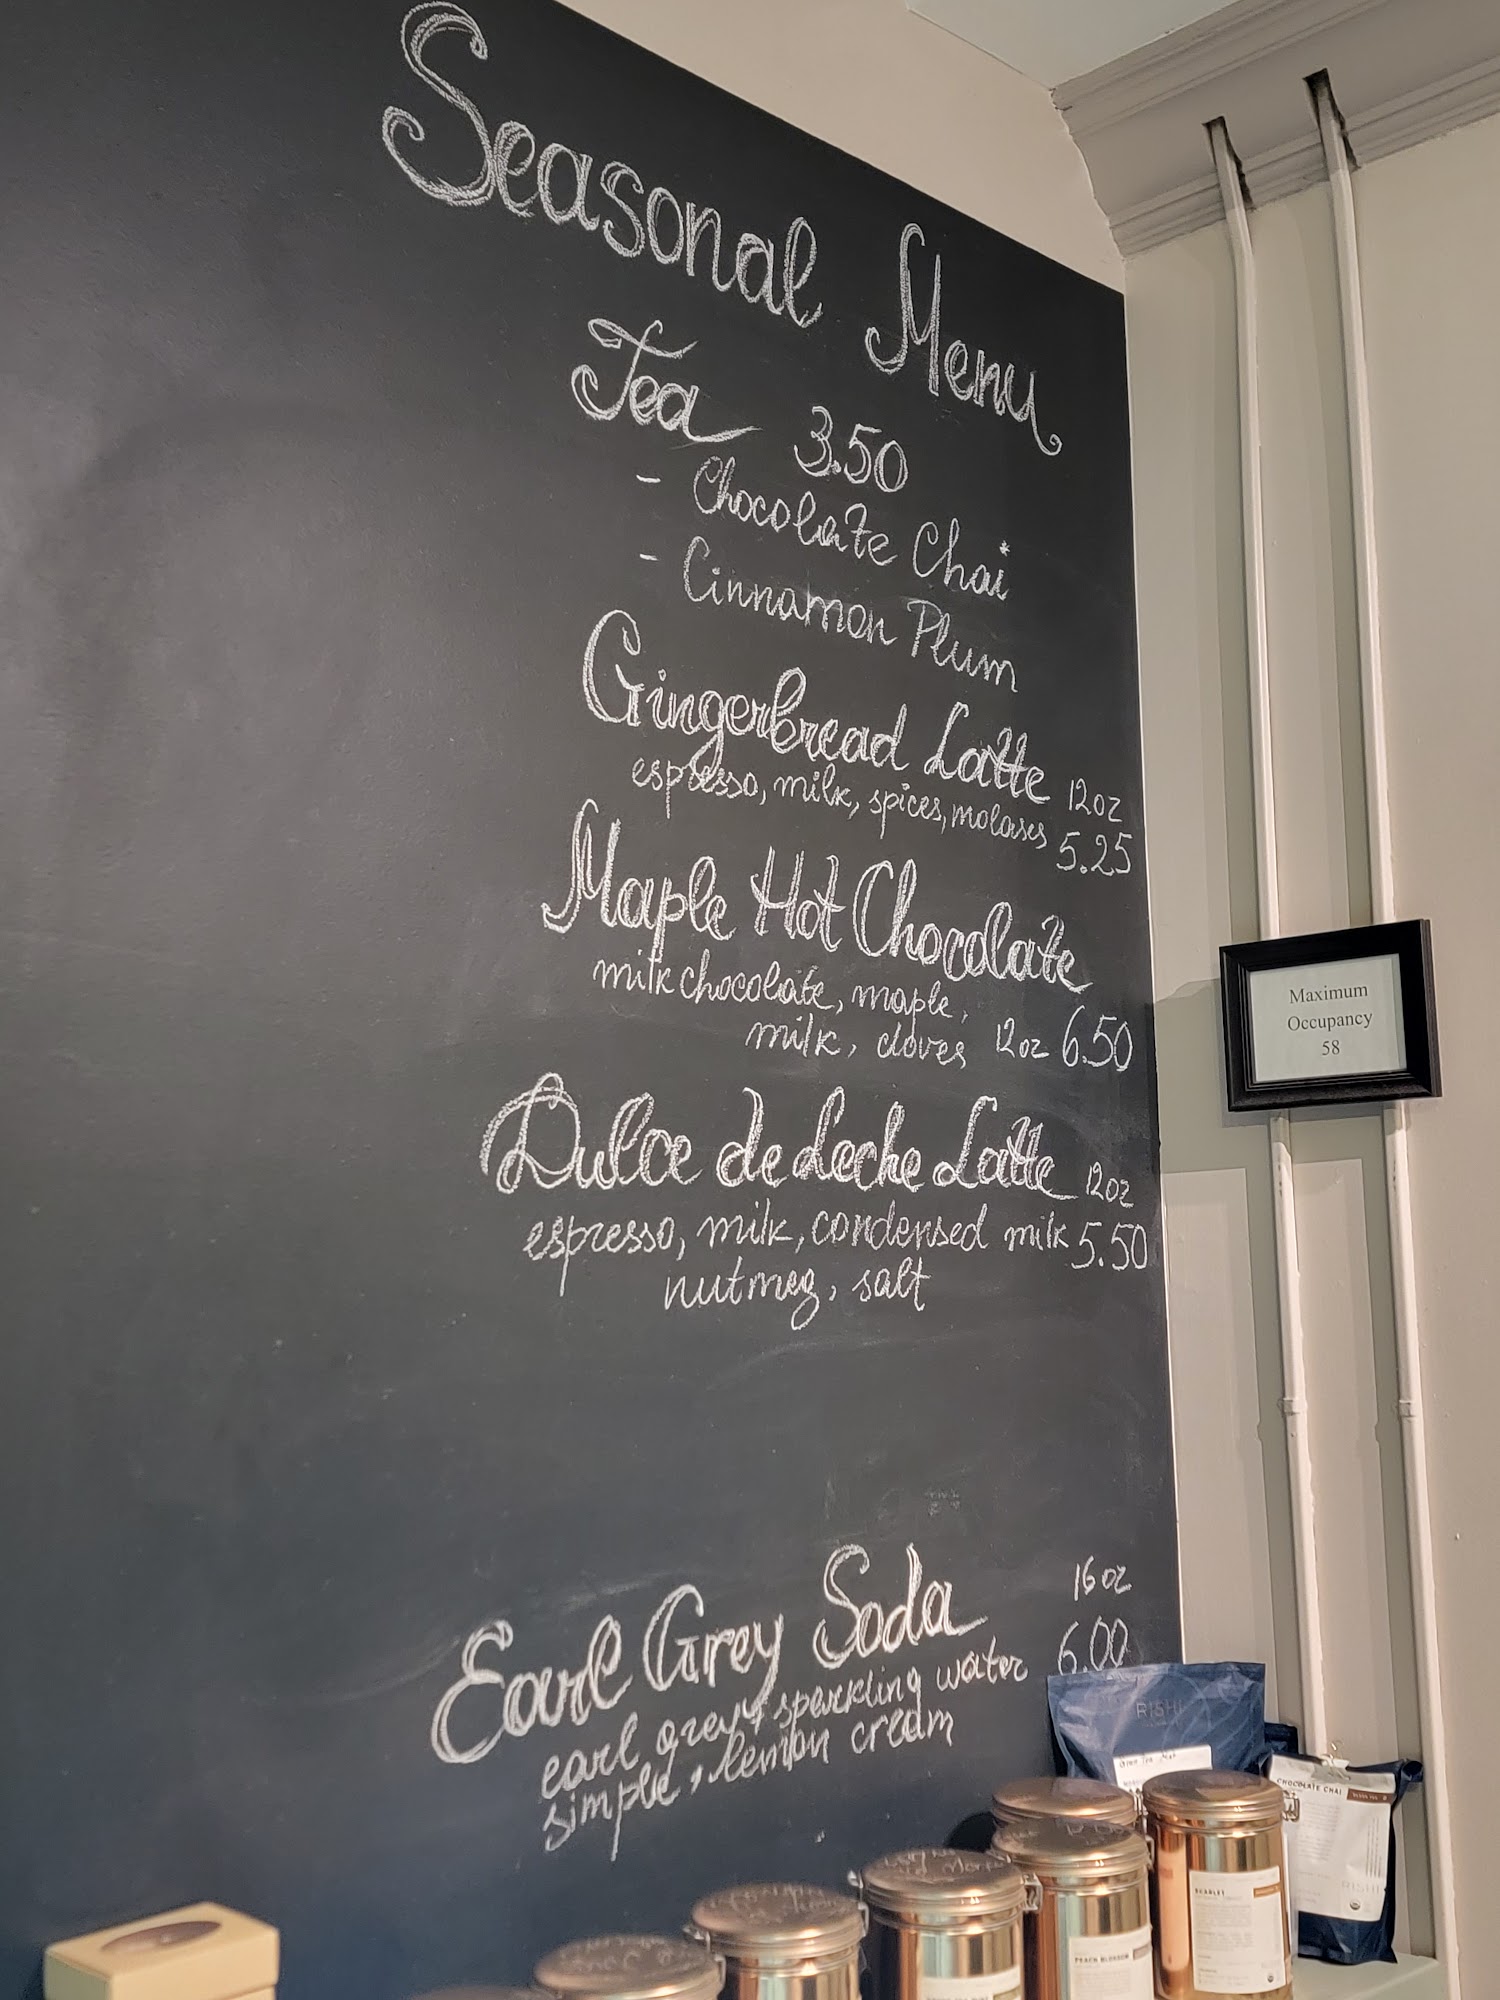 Seasonal Menu
Tea 3.50
- Chocolate Chai
- Cinnamon Plum
Gingerbread Latte 12oz
espresso, milk, spices, molases 5.25
Maple Hot Chocolate
milk chocolate, maple,
milk, cloves 12oz 6.50
Dulce de Leche Latte 12oz
espresso, milk, condensed milk 5.50
nutmeg, salt
Earl Grey Soda 16oz
earl grey, sparkling water 6.00
simple, lemon cream
Maximum
Occupancy
58
RISHI
CHOCOLATE CHAI
RISHI
SCARLET
PEACH BLOSSOM